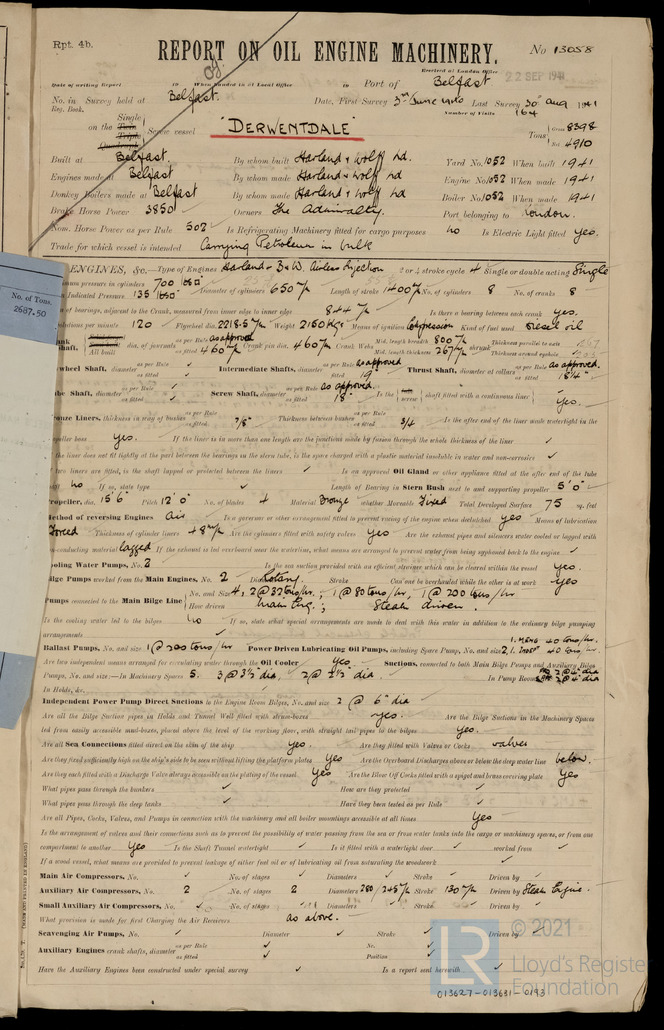 Rpt. 4b.
REPORT ON OIL ENGINE MACHINERY.
No 13058
Received at London Office
22 SEP 1941
Date of writing Report When handed in at Local Office Port of Belfast
No. in Survey held at Belfast. Date, First Survey 3rd June 1940 Last Survey 30th Aug 1941
Reg. Book. Number of Visits 164
on the Single Screw vessel "DERWENTDALE" Tons Gross 8398
Net 4910
Built at Belfast. By whom built Harland & Wolff Ld. Yard No. 1052 When built 1941
Engines made at Belfast By whom made Harland & Wolff Ld Engine No. 1052 When made 1941
Donkey Boilers made at Belfast By whom made Harland & Wolff Ld Boiler No. 1052 When made 1941
Brake Horse Power 3850 Owners The Admiralty. Port belonging to London.
Nom. Horse Power as per Rule 502 Is Refrigerating Machinery fitted for cargo purposes no Is Electric Light fitted yes.
Trade for which vessel is intended Carrying Petroleum in bulk
ENGINES, &c.—Type of Engines Harland-B&W. Airless Injection 2 or 4 stroke cycle 4 Single or double acting Single
pressure in cylinders 700 Diameter of cylinders 650 m/m Length of stroke 1400 m/m No. of cylinders 8 No. of cranks 8
Indicated Pressure 135
of bearings, adjacent to the Crank, measured from inner edge to inner edge 844 m/m Is there a bearing between each crank yes.
per minute 120 Flywheel dia. 2218.5 m/m Weight 2150 Kgs Means of ignition Compression Kind of fuel used Diesel oil
Shaft, dia. of journals as per Rule as approved as fitted 460 m/m Crank pin dia. 460 m/m Crank Webs Mid. length breadth 800 m/m Mid. length thickness 267 m/m shrunk Thickness parallel to axis
Thickness around eyehole
Flywheel Shaft, diameter as per Rule as fitted Intermediate Shafts, diameter as per Rule as approved as fitted Thrust Shaft, diameter at collars as per Rule as approved as fitted
Tube Shaft, diameter as per Rule as fitted Screw Shaft, diameter as per Rule as approved as fitted 18" Is the shaft fitted with a continuous liner yes.
Bronze Liners, thickness in way of bushes as per Rule as fitted 7/8" Thickness between bushes as per Rule as fitted 3/4 Is the after end of the liner made watertight in the
propeller boss yes. If the liner is in more than one length are the junctions made by fusion through the whole thickness of the liner ✓
the liner does not fit tightly at the part between the bearings in the stern tube, is the space charged with a plastic material insoluble in water and non-corrosive ✓
two liners are fitted, is the shaft lapped or protected between the liners ✓ Is an approved Oil Gland or other appliance fitted at the after end of the tube
shaft no If so, state type ✓ Length of Bearing in Stern Bush next to and supporting propeller 5'0"
Propeller, dia. 15'6" Pitch 12'0" No. of blades 4 Material Bronze whether Moveable Fixed Total Developed Surface 75 sq. feet
Method of reversing Engines Air Is a governor or other arrangement fitted to prevent racing of the engine when declutched yes Means of lubrication
Forced Thickness of cylinder liners 48 m/m Are the cylinders fitted with safety valves yes Are the exhaust pipes and silencers water cooled or lagged with
non-conducting material lagged If the exhaust is led overboard near the waterline, what means are arranged to prevent water from being syphoned back to the engine ✓
Cooling Water Pumps, No. 2 Is the sea suction provided with an efficient strainer which can be cleared within the vessel yes.
Bilge Pumps worked from the Main Engines, No. 2 Diameter Rotary. Stroke Can one be overhauled while the other is at work yes
Pumps connected to the Main Bilge Line No. and Size 4, 2 @ 32 tons/hr.; 1 @ 80 tons/hr, 1 @ 200 tons/hr
How driven Main Eng.; Steam driven.
Is the cooling water led to the bilges no If so, state what special arrangements are made to deal with this water in addition to the ordinary bilge pumping
arrangements ✓
Ballast Pumps, No. and size 1 @ 200 tons/hr Power Driven Lubricating Oil Pumps, including Spare Pump, No. and size 2, 40 tons/hr.
40 tons/hr.
Are two independent means arranged for circulating water through the Oil Cooler yes Suctions, connected to both Main Bilge Pumps and Auxiliary Bilge
Pumps, No. and size:—In Machinery Spaces 5. 3 @ 3½" dia, 2 @ 2½" dia. In Pump Room 2 @ 4" dia
In Holds, &c.
Independent Power Pump Direct Suctions to the Engine Room Bilges, No. and size 2 @ 6" dia
Are all the Bilge Suction pipes in Holds and Tunnel Well fitted with strum-boxes yes. Are the Bilge Suctions in the Machinery Spaces
led from easily accessible mud-boxes, placed above the level of the working floor, with straight tail pipes to the bilges yes.
Are all Sea Connections fitted direct on the skin of the ship yes. Are they fitted with Valves or Cocks valves
Are they fixed sufficiently high on the ship's side to be seen without lifting the platform plates yes Are the Overboard Discharges above or below the deep water line below.
Are they each fitted with a Discharge Valve always accessible on the plating of the vessel yes Are the Blow Off Cocks fitted with a spigot and brass covering plate yes
What pipes pass through the bunkers ✓ How are they protected ✓
What pipes pass through the deep tanks ✓ Have they been tested as per Rule ✓
Are all Pipes, Cocks, Valves, and Pumps in connection with the machinery and all boiler mountings accessible at all times yes
Is the arrangement of valves and their connections such as to prevent the possibility of water passing from the sea or from water tanks into the cargo or machinery spaces, or from one
compartment to another yes Is the Shaft Tunnel watertight ✓ Is it fitted with a watertight door ✓ worked from ✓
If a wood vessel, what means are provided to prevent leakage of either fuel oil or of lubricating oil from saturating the woodwork ✓
Main Air Compressors, No. ✓ No. of stages ✓ Diameters ✓ Stroke ✓ Driven by ✓
Auxiliary Air Compressors, No. 2 No. of stages 2 Diameters 280/245 m/m Stroke 130 m/m Driven by Steam Engine.
Small Auxiliary Air Compressors, No. ✓ No. of stages Diameters ✓ Stroke ✓ Driven by ✓
What provision is made for first Charging the Air Receivers as above.
Scavenging Air Pumps, No. ✓ Diameter ✓ Stroke ✓ Driven by ✓
Auxiliary Engines crank shafts, diameter as per Rule as fitted No. Position
Have the Auxiliary Engines been constructed under special survey ✓ Is a report sent herewith ✓
No. of Tons.
2687.50
© 2021
LR
Lloyd's Register
Foundation
013627-013631-0193